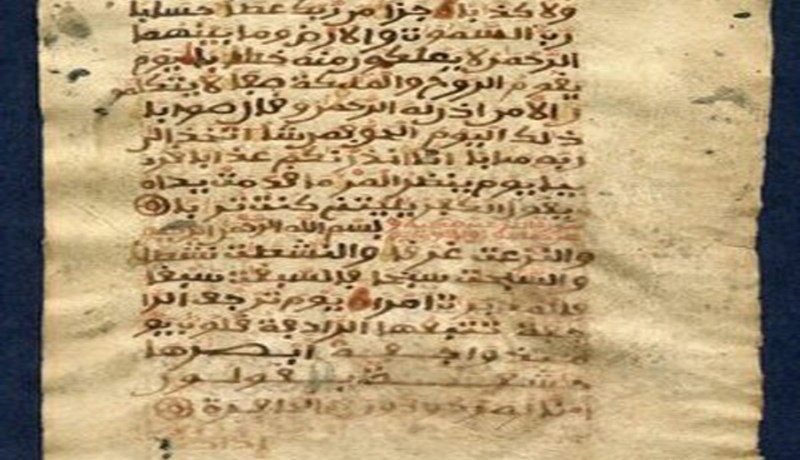 ولا كذبا جزا من ربك عطا حسابا
رب السموت والارض وما بينهما
الرحمن لا يملكون منه خطابا يوم
يقوم الروح والمليكة صفا لا يتكلمو
ن الا من اذن له الرحمن وقال صوابا
ذلك اليوم الحق فمن شا اتخذ الى
ربه مابا انا انذرنكم عذابا قر
يبا يوم ينظر المر ما قدمت يداه
ويقول الكفر يليتني كنت تربا
بسم الله الرحمن الرحيم
والنزعت غرفا والنشطت نشطا
والسبحت سبحا فالسبقت سبقا
فالمدبرت امرا يوم ترجف الرا
جفة تتبعها الرادفة قلوب يو
ميذ واجفة ابصرها
خشعة يقولون
انا لمردودون في الحافرة